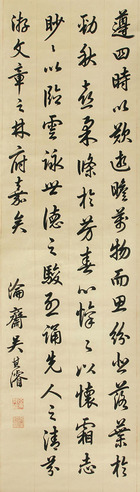 遵四時以歎逝瞻萬物而思紛悲落葉於
勁秋喜柔條於芳春心懍々以懷霜志
眇々以臨雲詠世德之駿烈誦先人之清芬
游文章之林府嘉矣
瀹齋吳其濬